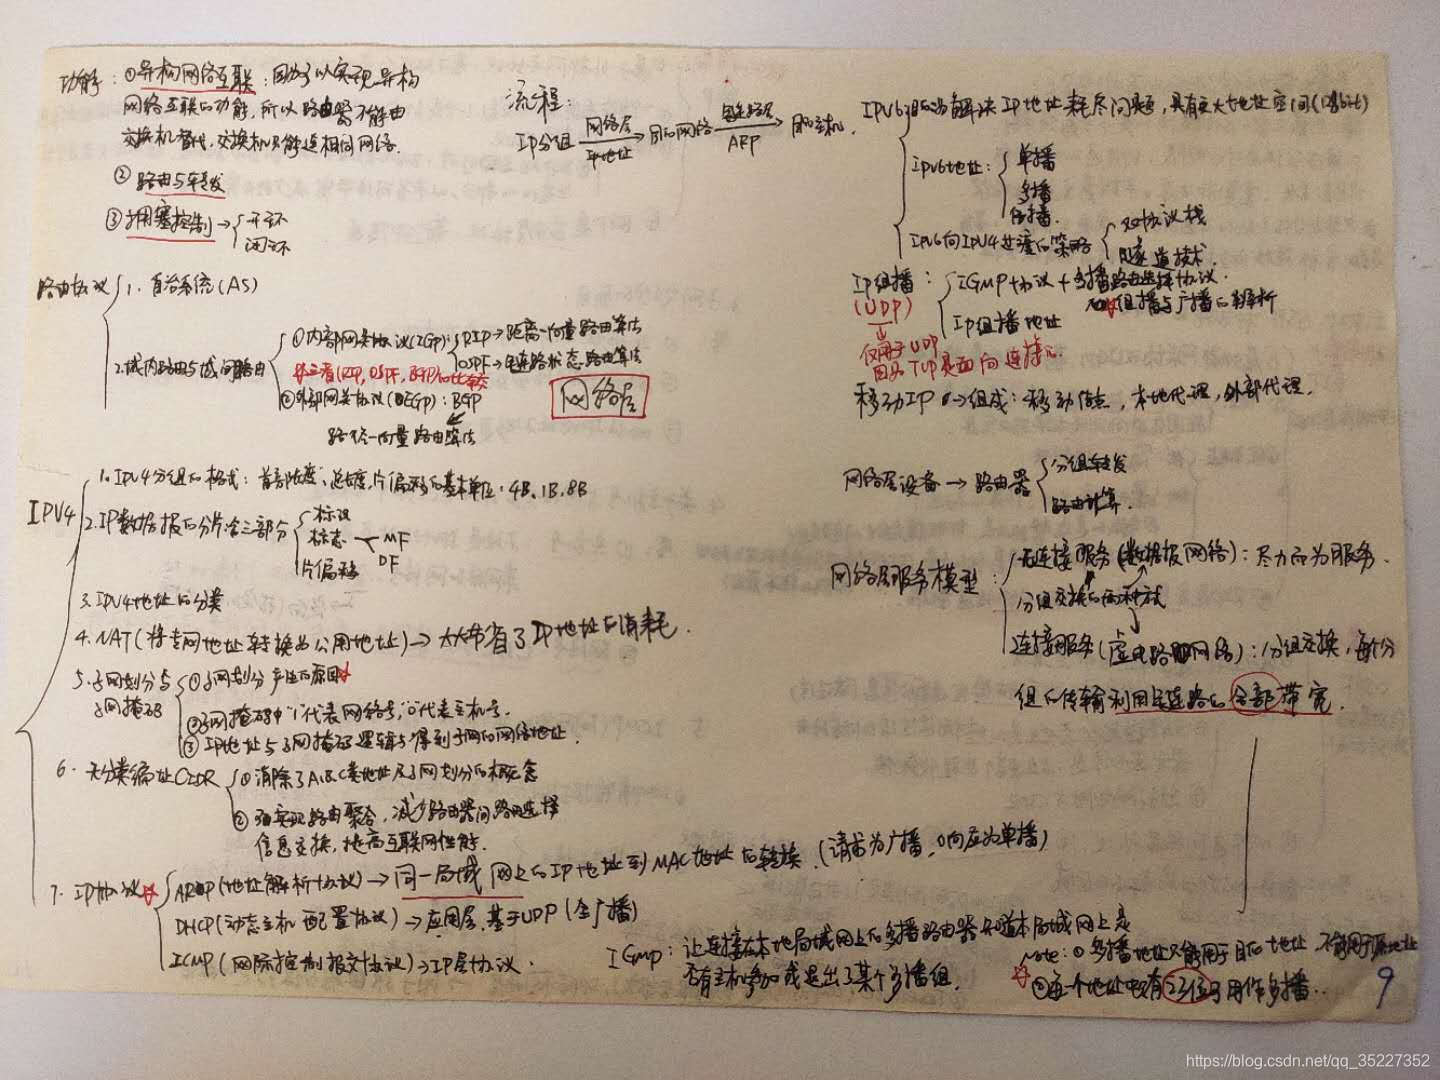 功能：①异构网络互联：因为了以实现异构
网络互联的功能，所以路由器不能由
交换机替代，交换机只能连相同网络.
②路由与转发
③拥塞控制→{开环
闭环
流程：
IP分组 网络层 IP地址 → 目的网络 链路层 ARP → 目的主机.
路由协议{1. 自治系统(AS)
2.域内路由与域间路由{①内部网关协议(IGP)：{RIP→距离-向量路由算法
OSPF→链路状态路由算法
三者(RIP, OSPF, BGP)的比较
②外部网关协议(EGP)：BGP
路径-向量路由算法
网络层
IPV4{1. IPV4分组的格式：首部长度、总长度，片偏移的基本单位：4B、1B、8B
2. IP数据报的分片含三部分{标识
标志<MF
DF
片偏移
3. IPV4地址的分类
4. NAT(将专网地址转换为公用地址)→大大节省了IP地址的消耗.
5. 子网划分与子网掩码{①子网划分产生的原因
②子网掩码中"1"代表网络号，"0"代表主机号.
③IP地址与子网掩码逻辑与得到子网的网络地址.
6. 无分类编址CIDR{①消除了A、B、C类地址及子网划分的概念
②实现路由聚合，减少路由器间路由选择
信息交换，提高互联网性能.
7. IP协议{ARP(地址解析协议)→同一局域网上的IP地址到MAC地址的转换.(请求为广播，响应为单播)
DHCP(动态主机配置协议)→应用层，基于UDP(全广播)
ICMP(网际控制报文协议)→IP层协议.
IGMP：让连接在本地局域网上的多播路由器知道本局域网上是
否有主机参加或退出了某个多播组.
IPV6：目的为解决IP地址耗尽问题，具有更大地址空间(128bit)
IPv6地址：{单播
多播
任播.
IPV6向IPV4过渡的策略{双协议栈
隧道技术.
IP组播：{IGMP协议+多播路由选择协议.
组播与广播的辨析
IP组播地址
(UDP)
仅用于UDP
因为TCP是面向连接的.
移动IP→组成：移动结点，本地代理，外部代理.
网络层设备→路由器{分组转发
路由计算.
网络层服务模型：{无连接服务(数据报网络)：尽力而为服务.
分组交换的两种方式
连接服务(虚电路网络)：分组交换，每个分
组的传输利用链路的全部带宽.
Note：①多播地址只能用于目的地址，不能用于源地址
②每个地址中只有23位可用作多播.
9
https://blog.csdn.net/qq_35227352